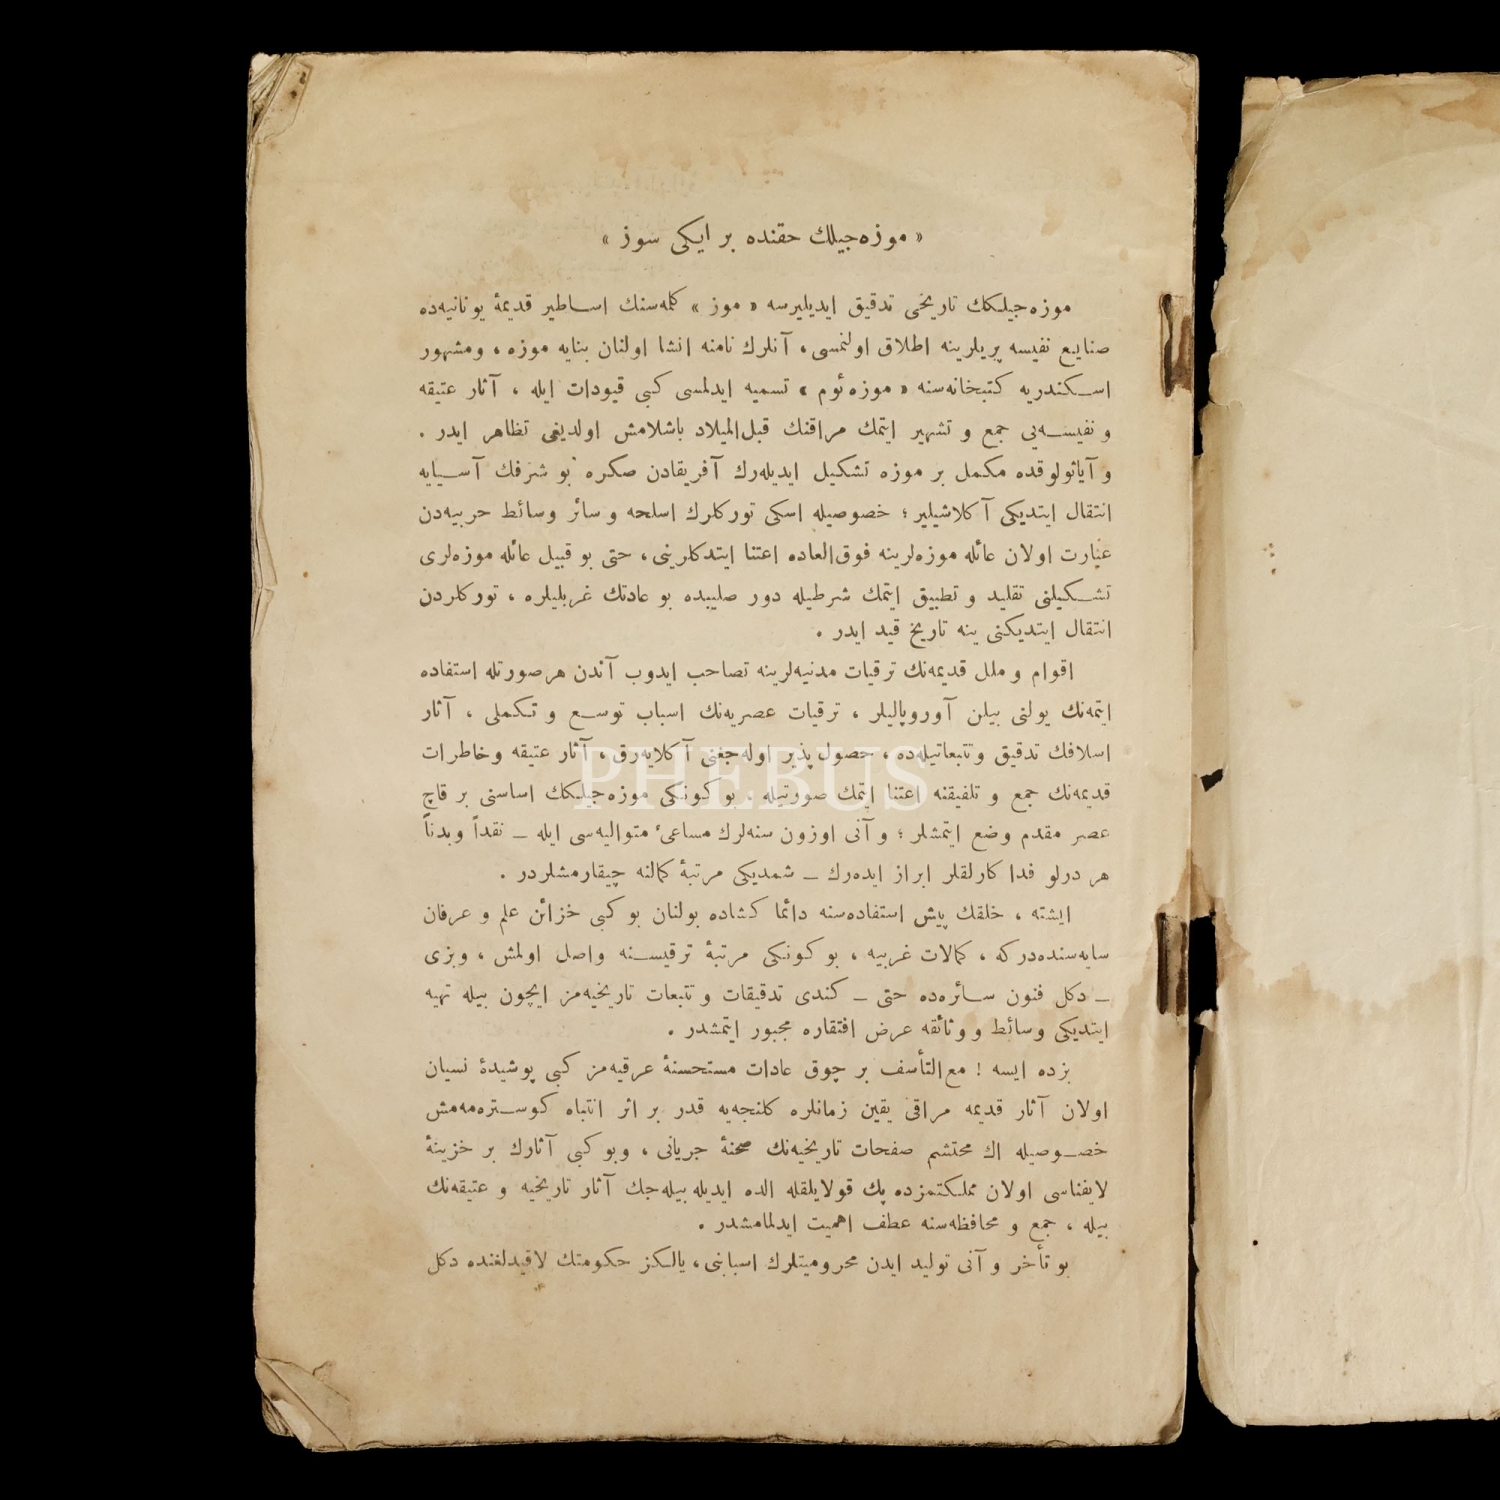 « موزه‌جیلك حقنده بر ایكی سوز »
موزه‌جیلكك تاریخی تدقیق ایدیلیرسه « موز » كلمه‌سنك اساطیر قدیمهٔ یونانیه‌ده
صنایع نفیسه پریلرینه اطلاق اولنمسی، آنلرك نامنه انشا اولنان بنایه موزه، ومشهور
اسكندریه كتبخانه‌سنه « موزه‌ئوم » تسمیه ایدلمسی كبی قیودات ایله ، آثار عتیقه
و نفیسه‌یی جمع و تشهیر ایتمك مراقنك قبل‌المیلاد باشلامش اولدیغی تظاهر ایدر .
و آیاثولوقده مكمل بر موزه تشكیل ایدیله‌رك آفریقادن صكره بو شرفك آسیایه
انتقال ایتدیكی آكلاشیلیر ؛ خصوصیله اسكی توركلرك اسلحه و سائر وسائط حربیه‌دن
عبارت اولان عائله موزه‌لرینه فوق‌العاده اعتنا ایتدكلرینی، حتی بو قبیل عائله موزه‌لری
تشكیلنی تقلید و تطبیق ایتمك شرطیله دور صلیبده بو عادتك غربلیلره ، توركلردن
انتقال ایتدیكنی ینه تاریخ قید ایدر .
اقوام و ملل قدیمه‌نك ترقیات مدنیه‌لرینه تصاحب ایدوب آندن هرصورتله استفاده
ایتمه‌نك یولنی بیلن آوروپالیلر ، ترقیات عصریه‌نك اسباب توسع و تكملی ، آثار
اسلافك تدقیق وتتبعاتیله‌ده ، حصول پذیر اوله‌جغنی آكلایه‌رق ، آثار عتیقه وخاطرات
قدیمه‌نك جمع و تلفیقنه اعتنا ایتمك صورتیله ، بوكونكی موزه‌جیلكك اساسنی بر قاچ
عصر مقدم وضع ایتمشلر ؛ و آنی اوزون سنه‌لرك مساعیٔ متوالیه‌سی ایله ــ نقداً وبدناً
هر درلو فداكارلقلر ابراز ایده‌رك ــ شمدیكی مرتبهٔ كمالنه چیقارمشلردر .
ایشته ، خلقك پیش استفاده‌سنه دائما كشاده بولنان بوكبی خزائن علم و عرفان
سایه‌سنده‌دركه ، كمالات غربیه ، بوكونكی مرتبهٔ ترقیسنه واصل اولمش ، وبزی
ــ دكل فنون سائره‌ده حتی ــ كندی تدقیقات و تتبعات تاریخیه‌مز ایچون بیله تهیه
ایتدیكی وسائط و وثائقه عرض افتقاره مجبور ایتمشدر .
بزده ایسه ! مع‌التأسف بر چوق عادات مستحسنهٔ عرقیه‌مز كبی پوشیدهٔ نسیان
اولان آثار قدیمه مراقی یقین زمانلره كلنجه‌یه قدر بر اثر انتباه كوستره‌مه‌مش
خصوصیله اك محتشم صفحات تاریخیه‌نك صحنهٔ جریانی ، وبوكبی آثارك بر خزینهٔ
لایفناسی اولان مملكتمزده پك قولایلقله الده ایدیله‌بیله‌جك آثار تاریخیه و عتیقه‌نك
بیله ، جمع و محافظه‌سنه عطف اهمیت ایدلمامشدر .
بو تأخر و آنی تولید ایدن محرومیتلرك اسبابنی، یالكز حكومتك لاقیدلغنده دكل
PHEBUS